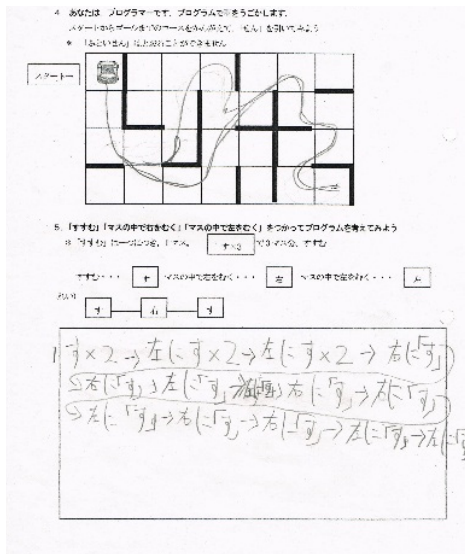 4 あなたは プログラマーです。プログラムで車をうごかします。
スタートからゴールまでのコースをかんがえて、「せん」を引いてみよう
＊ 「ふといせん」はとおることができません
スタート→
5. 「すすむ」「マスの中で右をむく」「マスの中で左をむく」をつかってプログラムを考えてみよう
※ 「すすむ」は一つにつき、1マス。 す×3 で3マス分、すすむ
すすむ・・・ す マスの中で右をむく・・・ 右 マスの中で左をむく・・・ 左
す 右 す
す×2→左に す×2→左に す×2→右に「す」
→右に「す」→左に「す」→ 右に「す」→右に「す」
→左に「す」→右に「す」→右に「す」→左に「す」→左に「す